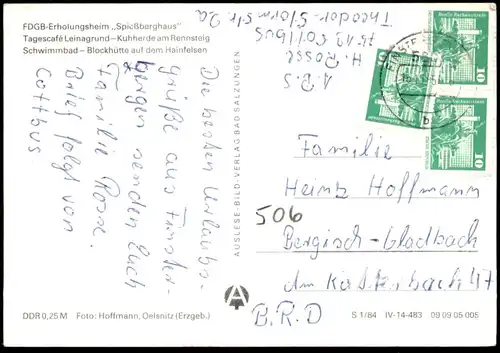 FDGB-Erholungsheim „Spießberghaus"
Tagescafé Leinagrund – Kuhherde am Rennsteig
Schwimmbad – Blockhütte auf dem Hainfelsen
Die besten Urlaubs-
grüße aus Finster-
bergen senden Euch
Familie Rosse.
Brief folgt von
Cottbus
ABS
H. Rosse
7513 Cottbus
Theodor-Storm-Str. 2a
AUSLESE-BILD-VERLAG BAD SALZUNGEN
DDR
10
DDR
10
DDR
10
Familie
Heinz Hoffmann
506
Bergisch-Gladbach
Am Katterbach 47
B.R.D
DDR 0,25 M Foto: Hoffmann, Oelsnitz (Erzgeb.)
S 1/84 IV-14-483 09 09 05 005